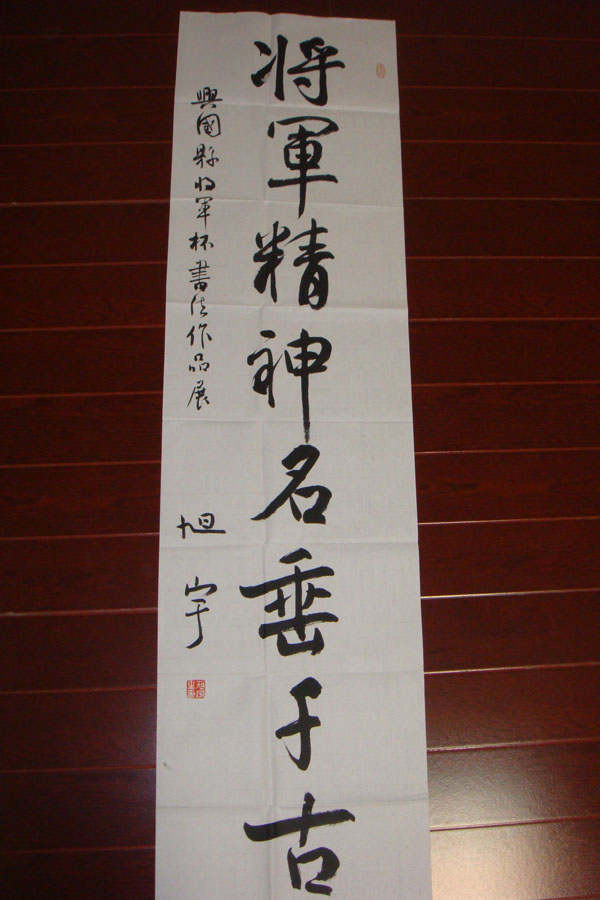 将軍精神名垂千古
興國縣将軍杯書法作品展
旭宇